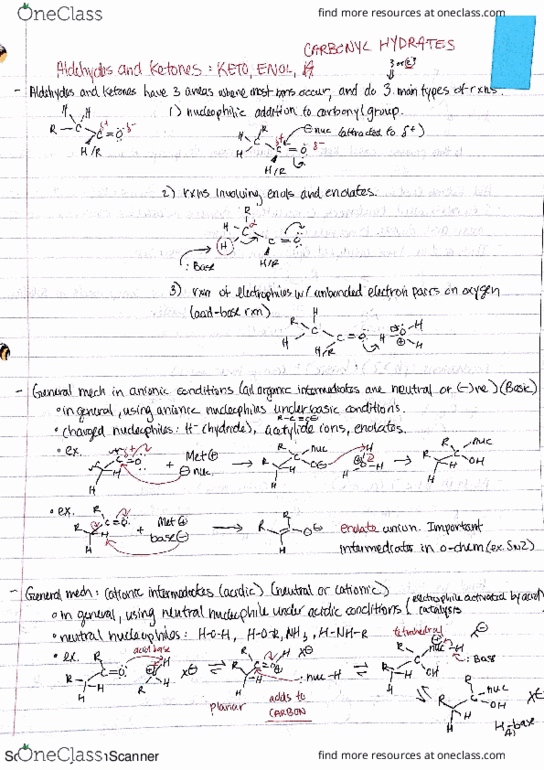 OneClass
find more resources at oneclass.com
CARBONYL HYDRATES
Aldehydes and Ketones: KETO, ENOL,
3 or
- Aldehydes and Ketones have 3 areas where most rxns occur, and do 3 main types of rxns.
1) nucleophilic addition to carbonyl group.
H H
R C C=O δ+ δ-
H/R
⊖nuc (attracted to δ+)
H/R
2) rxns involving enols and enolates.
R
H C α C=O
H
:Base H/R
3) rxn of electrophiles w/ unbonded electron pairs on oxygen
(acid-base rxn)
H/R
- General mech in anionic conditions (all organic intermediates are neutral or (-)ve) (Basic)
• in general, using anionic nucleophiles under basic conditions.
R-C≡C⊖
• charged nucleophiles: H- (hydride), acetylide ions, enolates.
• ex.
+ Met⊕
⊖nuc.
nuc
OH
• ex.
+ Met⊕
base⊖
enolate anion. Important
intermediates in o-chem (ex. SN2)
- General mech: cationic intermediates (acidic) (neutral or cationic)
(electrophile activated by acid)
catalysts
• in general, using neutral nucleophile under acidic conditions
• neutral nucleophiles: H-O-H, H-O-R, NH3, H-NH-R
tetrahedral
• ex.
acid base
X⊖
:nuc-H
:Base
planar
adds to
CARBON
nuc
OH
H-base
OneClass
Scanner
find more resources at oneclass.com